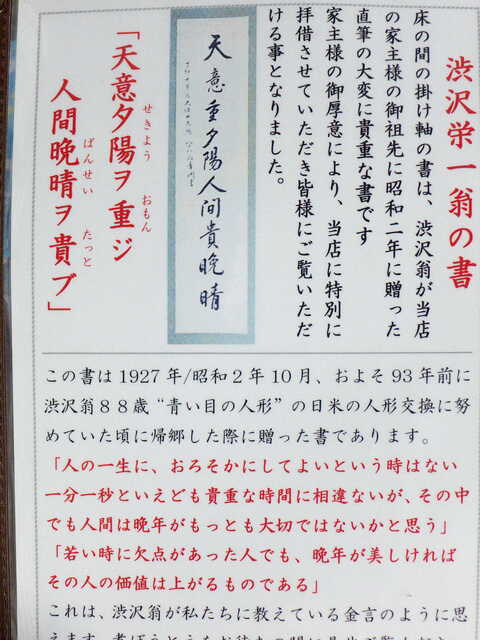 渋沢栄一翁の書
床の間の掛け軸の書は、渋沢翁が当店
の家主様の御祖先に昭和二年に贈った
直筆の大変に貴重な書です
家主様の御厚意により、当店に特別に
拝借させていただき皆様にご覧いただ
ける事となりました。
天意重夕陽人间貴晩晴
「天意夕陽ヲ重ジ
せきよう おもん
人間晩晴ヲ貴ブ」
ばんせい たっと
この書は1927年/昭和2年10月、およそ93年前に
渋沢翁88歳“青い目の人形”の日米の人形交換に努
めていた頃に帰郷した際に贈った書であります。
「人の一生に、おろそかにしてよいという時はない
一分一秒といえども貴重な時間に相違ないが、その中
でも人間は晩年がもっとも大切ではないかと思う」
「若い時に欠点があった人でも、晩年が美しければ
その人の価値は上がるものである」
これは、渋沢翁が私たちに教えている金言のように思